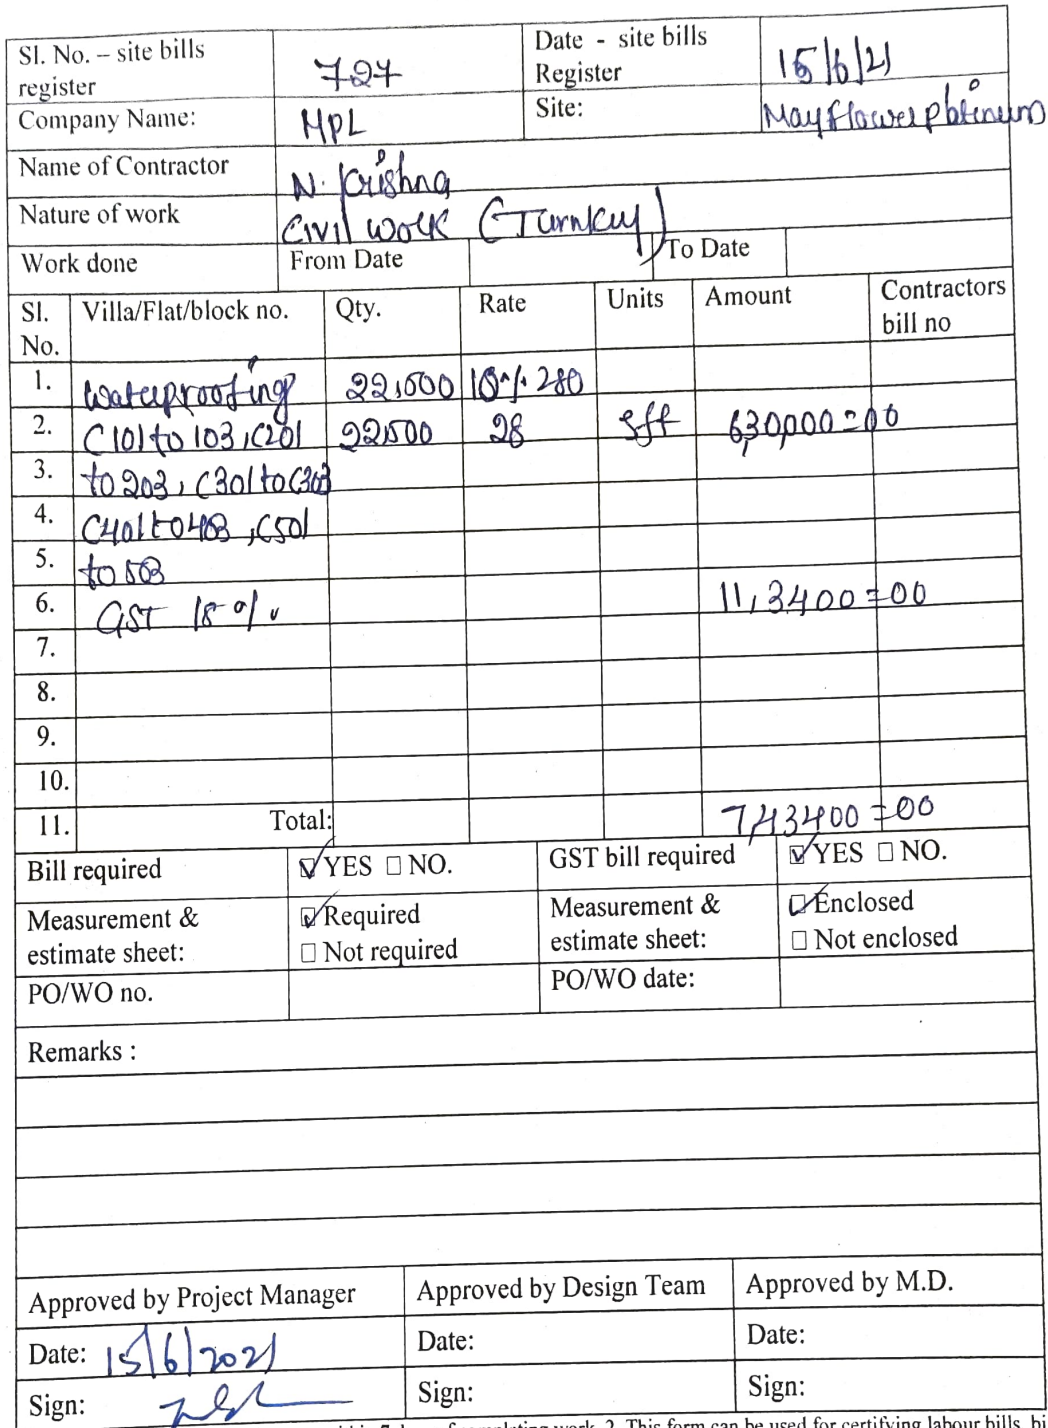 Sl. No. – site bills register 727 Date - site bills Register 15/6/21
Company Name: MPL Site: Mayflower platinum
Name of Contractor N. Krishna
Nature of work Civil work (Turnkey)
Work done From Date To Date
Sl. No. Villa/Flat/block no. Qty. Rate Units Amount Contractors bill no
1. Waterproofing 22,500 10% 280
2. C101 to 103, C201 22500 28 sft 6,30,000=00
3. to 203, C301 to C303
4. C401 to 403, C501
5. to 503
6. GST 18% 11,3400=00
7.
8.
9.
10.
11. Total: 7,43400=00
Bill required ☑ YES □ NO. GST bill required ☑ YES □ NO.
Measurement & estimate sheet: ☑ Required □ Not required Measurement & estimate sheet: ☑ Enclosed □ Not enclosed
PO/WO no. PO/WO date:
Remarks :
Approved by Project Manager Approved by Design Team Approved by M.D.
Date: 15/6/2021 Date: Date:
Sign: Sign: Sign:
work. 2. This form can be used for certifying labour bills,